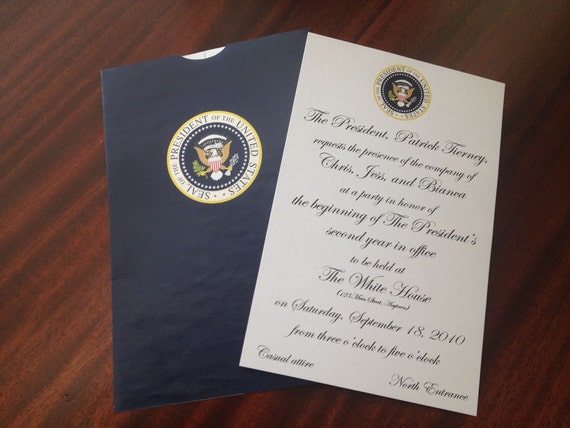 SEAL OF THE PRESIDENT OF THE UNITED STATES
SEAL OF THE PRESIDENT OF THE UNITED STATES
The President, Patrick Tierney,
requests the presence of the company of
Chris, Jess, and Bianca
at a party in honor of
the beginning of The President's
second year in office
to be held at
The White House
(123 Main Street, Anytown)
on Saturday, September 18, 2010
from three o'clock to five o'clock
Casual attire
North Entrance